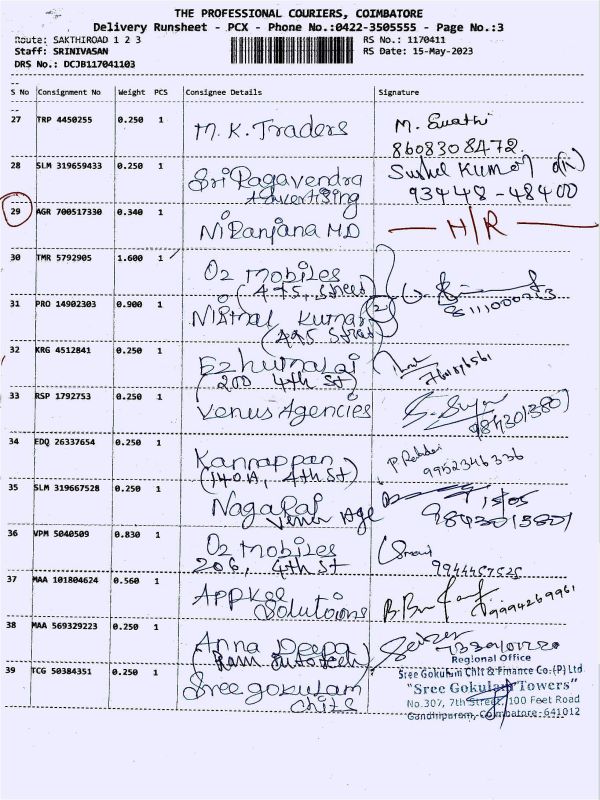 THE PROFESSIONAL COURIERS, COIMBATORE
Delivery Runsheet - PCX - Phone No.:0422-3505555 - Page No.:3
Route: SAKTHIROAD 1 2 3
RS No.: 1170411
Staff: SRINIVASAN
RS Date: 15-May-2023
DRS No.: DCJB117041103
S No Consignment No Weight PCS Consignee Details Signature
27 TRP 4450255 0.250 1 M.K. Traders M. Swathi
8608308472
28 SLM 319659433 0.250 1 Sri Ragavendra Advertising Sushil Kumar
93448-48400
29 AGR 700517330 0.340 1 Niranjana M.D H/R
30 TMR 5792905 1.600 1 O2 Mobiles
(475, Street)
31 PRO 14902303 0.900 1 Nirmal Kumar (2)
32 KRG 4512841 0.250 1 Ezhumalai
(200 4th St)
33 RSP 1792753 0.250 1 Venus Agencies
34 EDQ 26337654 0.250 1 Kannappan
(140A, 4th St) 9952346336
35 SLM 319667528 0.250 1 Nagaraj
Venus Age 9843013801
36 VPM 5040509 0.830 1 O2 Mobiles
206, 4th St 9944457525
37 MAA 101804624 0.560 1 Appkee
Solutions 9994269961
38 MAA 569329223 0.250 1 Anna Deepa
(Ram Autotech)
39 TCG 50384351 0.250 1 Sree gokulam
chits
Regional Office
Sree Gokulam Chit & Finance Co.(P) Ltd
"Sree Gokulam Towers"
No.307, 7th Street, 100 Feet Road
Gandhipuram, Coimbatore-641012